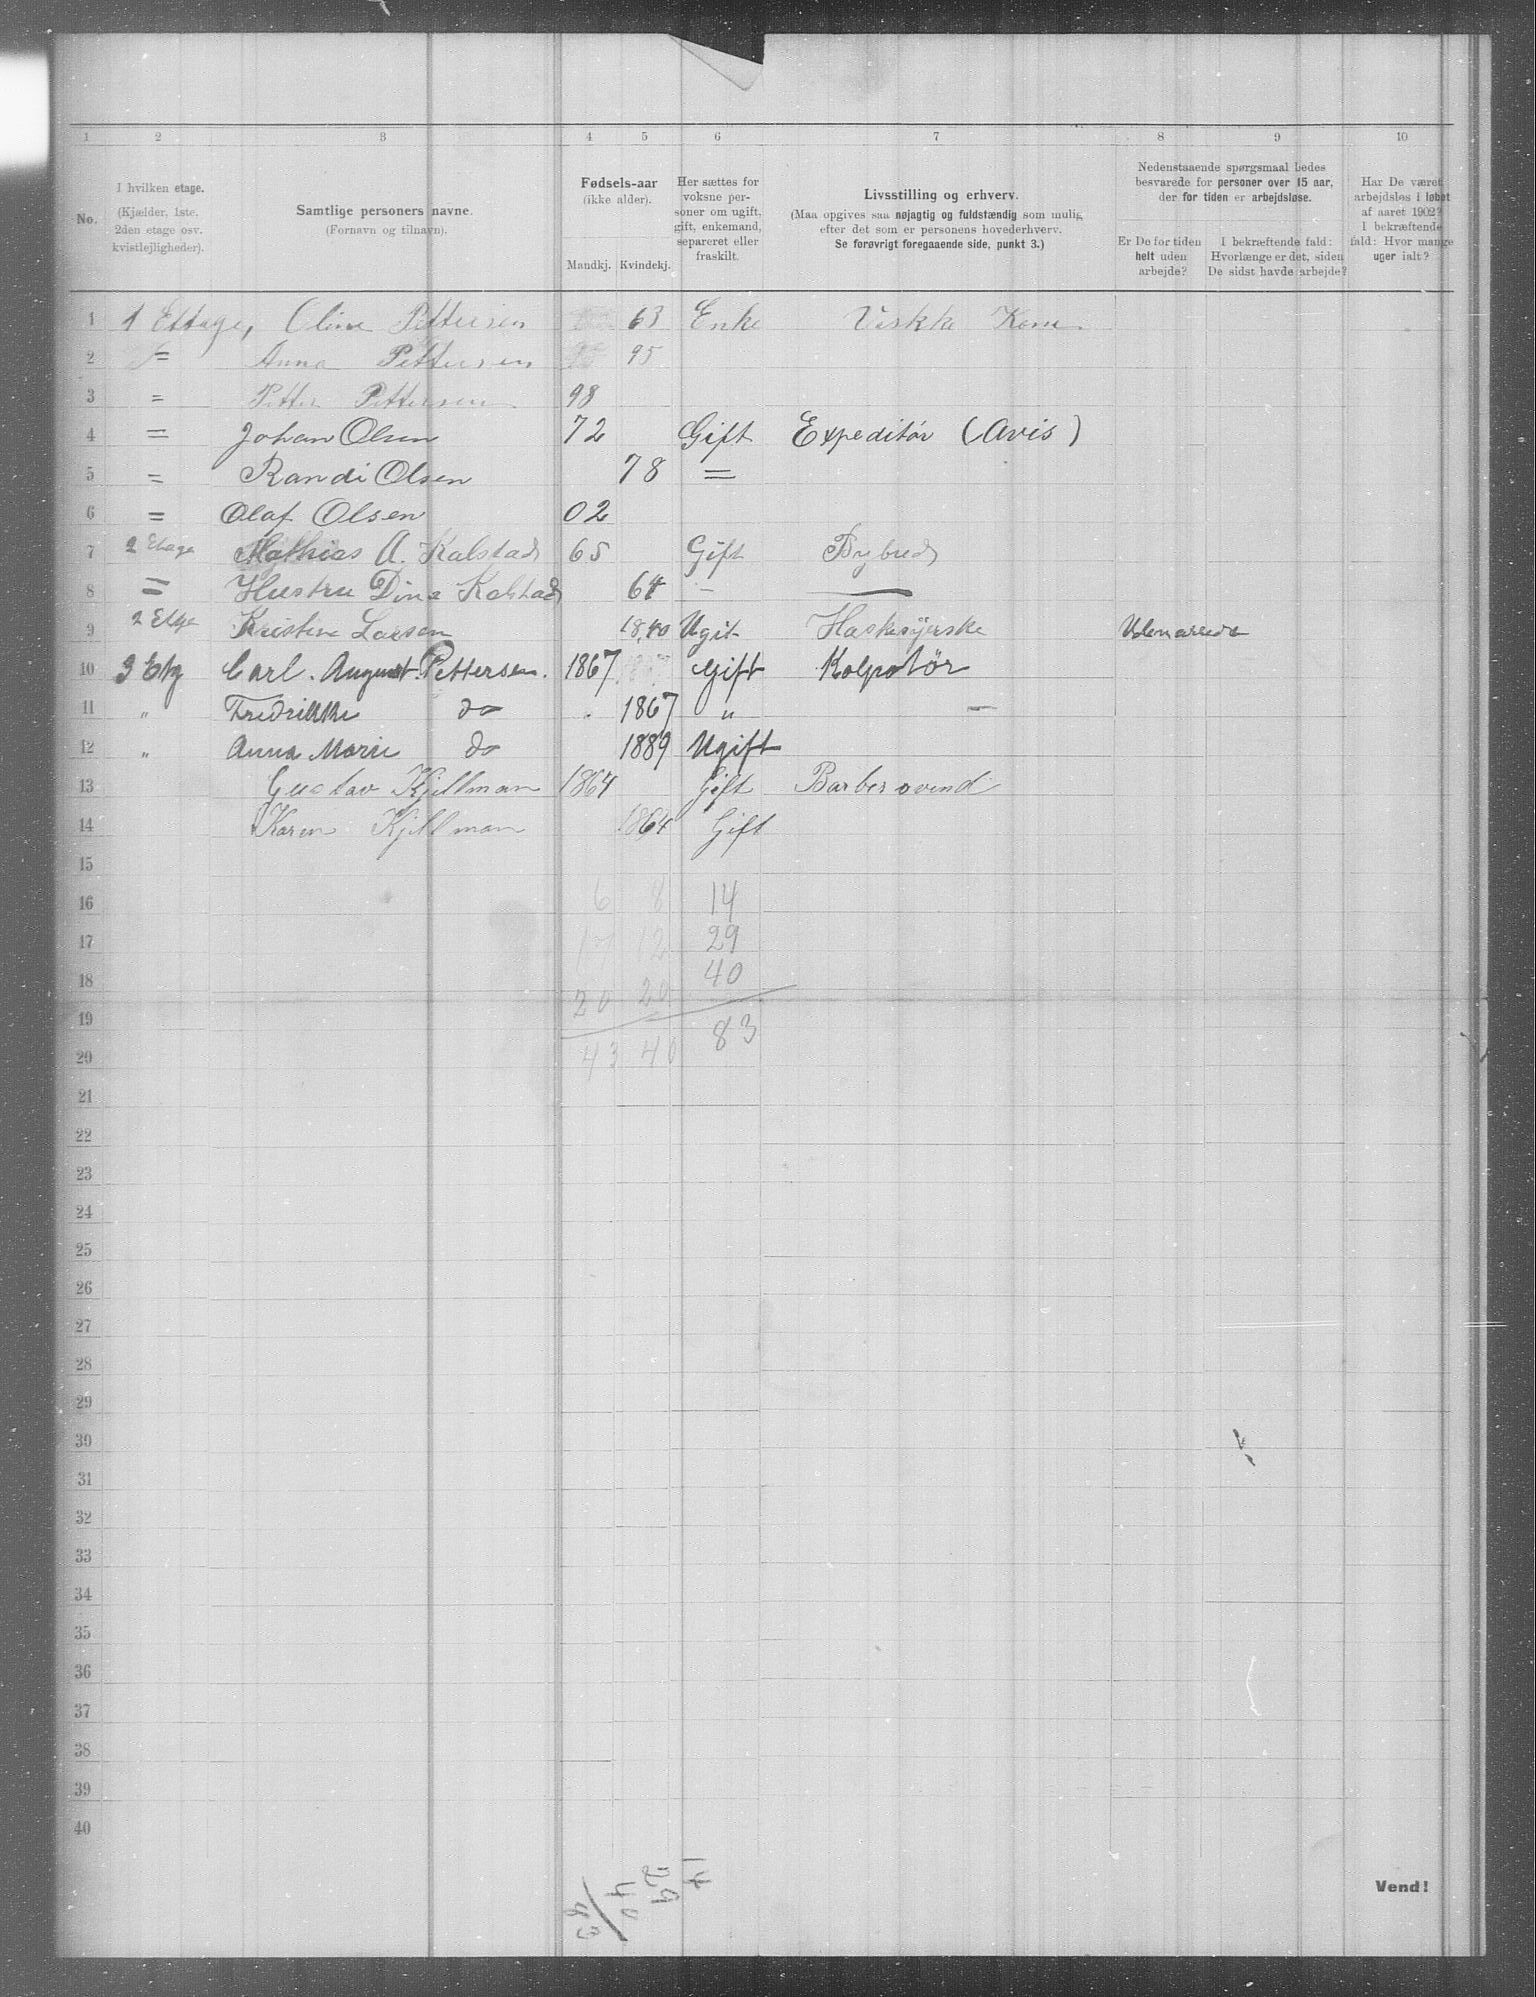 1 2 3 4 5 6 7 8 9 10
No. I hvilken etage. (Kjælder, 1ste, 2den etage osv. kvistlejligheder). Samtlige personers navne. (Fornavn og tilnavn). Fødsels-aar (ikke alder). Mandkj. Kvindekj. Her sættes for voksne personer om ugift, gift, enkemand, separeret eller fraskilt. Livsstilling og erhverv. (Maa opgives saa nøjagtig og fuldstændig som mulig, efter det som er personens hovederhverv. Se forøvrigt foregaaende side, punkt 3.) Nedenstaaende spørgsmaal bedes besvarede for personer over 15 aar, der for tiden er arbejdsløse. Er De for tiden helt uden arbejde? I bekræftende fald: Hvorlænge er det, siden De sidst havde arbejde? Har De været arbejdsløs i løbet af aaret 1902? I bekræftende fald: Hvor mange uger ialt?
1 1 Ettage, Oline Pettersen 63 Enke Kone
2 = Anna Pettersen 95
3 = Petter Pettersen 98
4 = Johan Olsen 72 Gift Expeditør (Avis)
5 = Randi Olsen 78 =
6 = Olaf Olsen 02
7 2 Etage Mathias A. Kalstad 65 Gift Bybud
8 = Hustru Dina Kalstad 64 –  —
9 2 Etge Kristine Larsen 1840 Ugit
10 3 Etg Carl. August. Pettersen. 1867 Gift Kolpotør
11 " Fredrikke do 1867 " –
12 " Anna Marie do 1889 Ugift
13 Gustav Kjellman 1864 Gift Barbersvend
14 Karen Kjellman 1864 Gift
15
16 6 8 14
17 17 12 29
18 20 20 40
19
20 43 40 83
21
22
23
24
25
26
27
28
29
30
31
32
33
34
35
36
37
38
39
40
14
29
40
83
Vend!